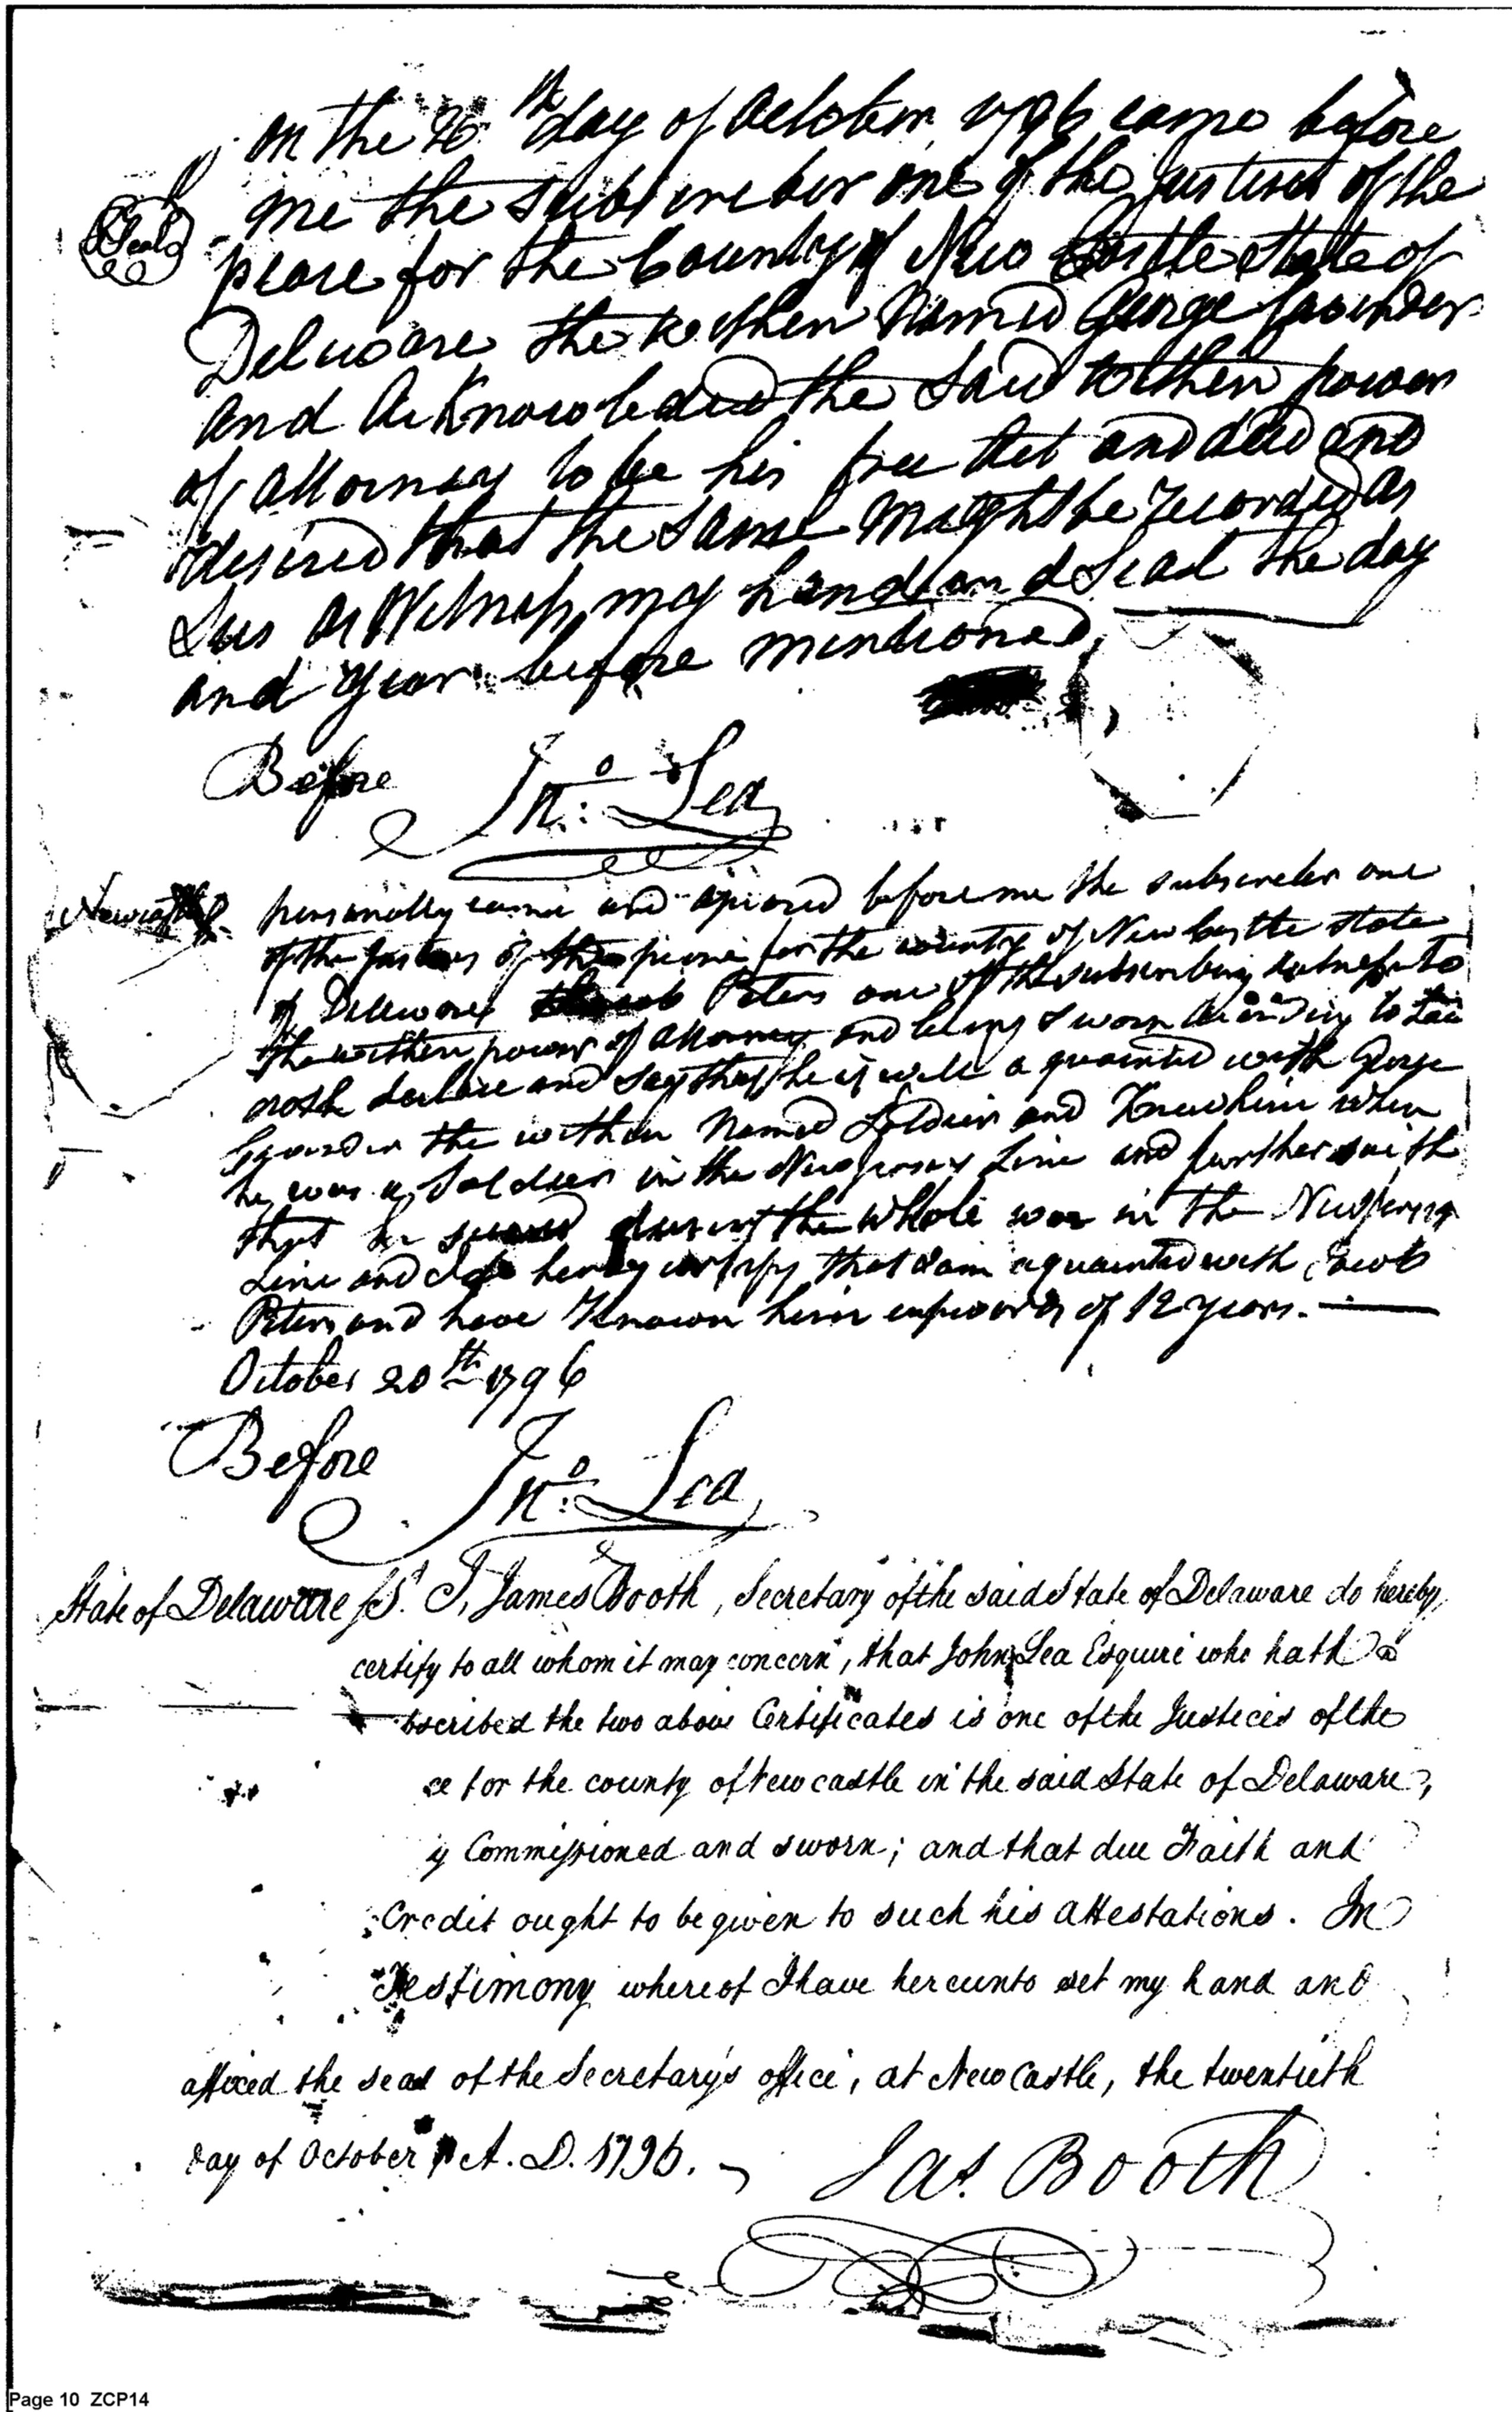 on the 20th day of October 1796 came before
me the subscreber one of the Justises of the
Seal
peace for the County of New Castle State of
Deluware the withen Named George
and Acknowledied the said withen power
of attorney to be his free Act and deed and
desired that the same might be recorded as
as Witness my hand and Seal the day
and year before mentioned,
Before Jno: Lea
Newcastle personally came and apiared before me the subscreber one
of the Justices of the peace for the county of New Castle State
of Deleware Jacob Peters one of the subscribing witness to
the withen power of attorney and being sworn according to Law
doth declare and say that he is well aquainted with George
the within Named Soldier and Knew him when
he was a Soldier in the New Jersey Line and further saith
that he served during the whole war in the New Jersey
Line and I do hereby certify that I am aquainted with Jacob
Peters and have Known him upwards of 12 years.
October 20th 1796
Before Jno: Lea
State of Delaware Ss. I, James Booth, Secretary of the said State of Delaware do hereby
certify to all whom it may concern, that John Lea Esquire who hath
bscribed the two above Certificates is one of the Justices of the
ce for the county of Newcastle in the said State of Delaware,
y Commissioned and sworn; and that due Faith and
Credit ought to be given to such his attestations. In
Testimony whereof I have hereunto set my hand and
affixed the seal of the Secretary's office, at New Castle, the twentieth
day of October A. D. 1796.
Jas. Booth
Page 10 ZCP14